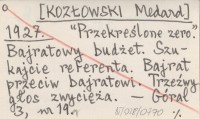 [KOZŁOWSKI Medard]
1927. "Przekreślone zero."
Bajratowy budżet. Szu-
kajcie referenta. Bajrat
przeciw bajratowi. Trzeźwy
głos zwycięża. — Góral
3, nr 19.